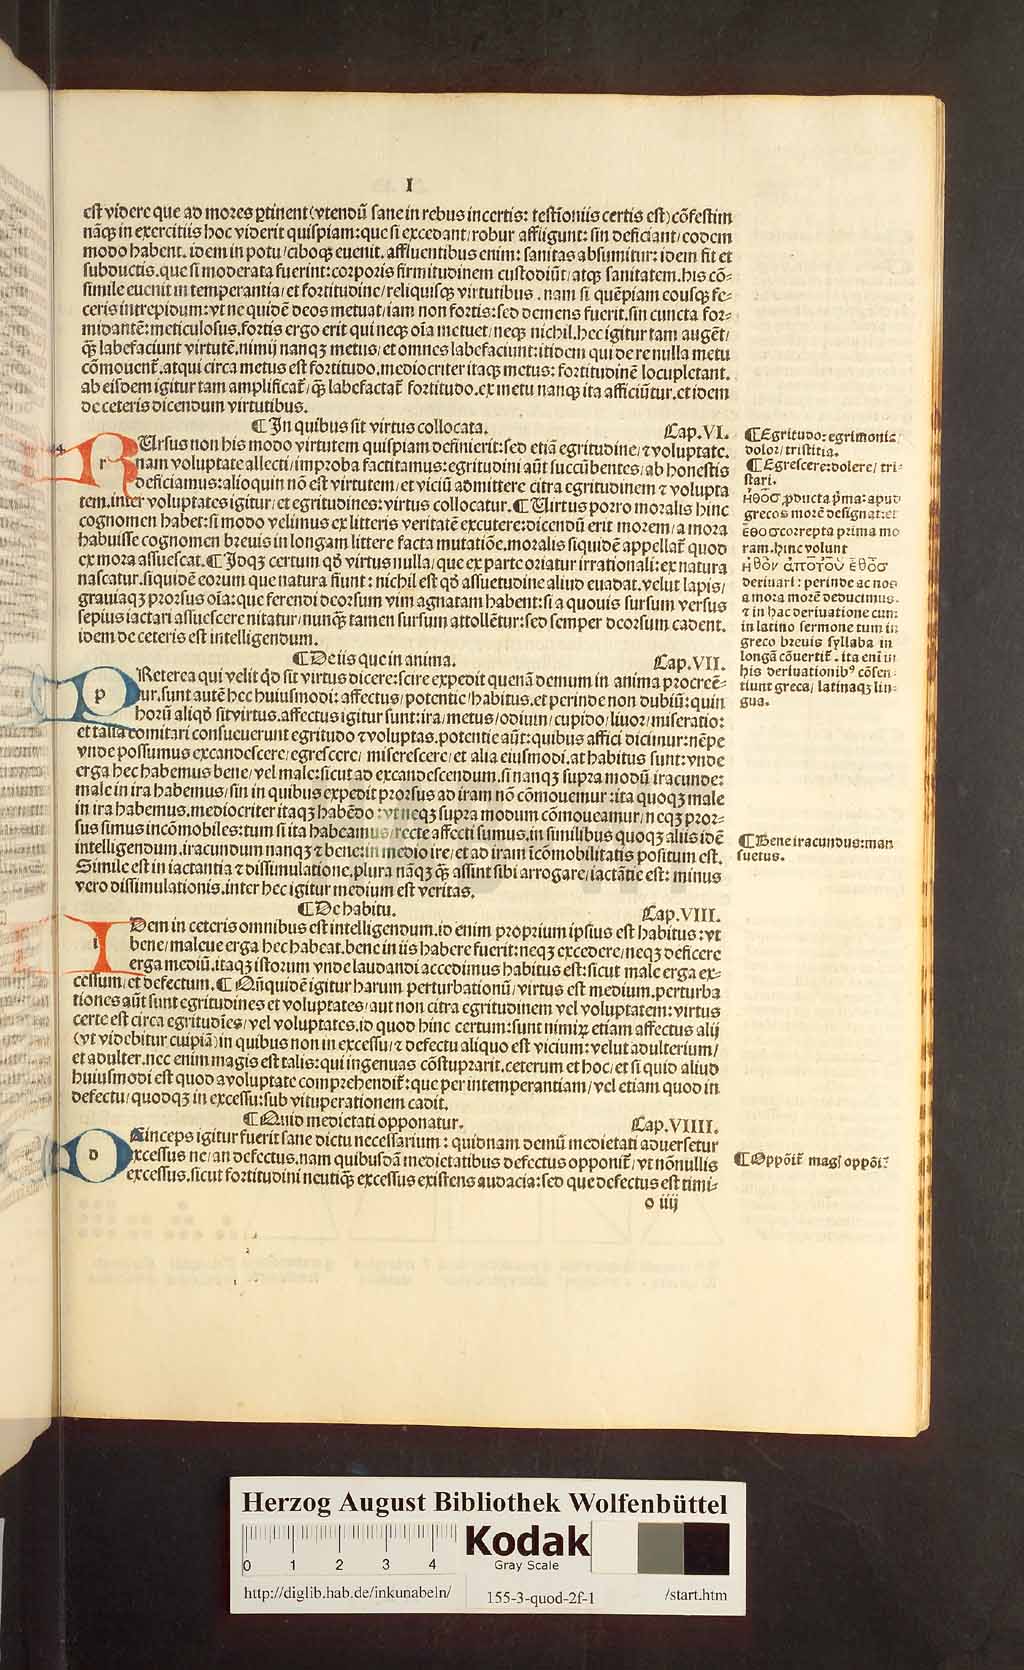 I
est videre que ad mores ꝑtinent (vtendū sane in rebus incertis: testīoniis certis est) cōfestim
nāqꝫ in exercitiis hoc viderit quispiam: que si excedant/ robur affligunt: sin deficiant/ eodem
modo habent. idem in potu/ ciboqꝫ euenit. affluentibus enim: sanitas absumitur: idem fit et
subductis. que si moderata fuerint: corporis firmitudinem custodiūt/ atqꝫ sanitatem. his cō-
simile euenit in temperantia/ et fortitudine/ reliquisqꝫ virtutibus. nam si quēpiam eousqꝫ fe-
ceris intrepidum: vt ne quidē deos metuat/ iam non fortis: sed demens fuerit. sin cuncta for-
midantē: meticulosus. fortis ergo erit qui neqꝫ oīa metuet/ neqꝫ nichil. hec igitur tam augēt/
qꝫ labefaciunt virtutē. nimij nanqꝫ metus/ et omnes labefaciunt: itidem qui de re nulla metu
cōmouent̄. atqui circa metus est fortitudo. mediocriter itaqꝫ metus: fortitudinē locupletant.
ab eisdem igitur tam amplificat̄/ qꝫ labefactat̄ fortitudo. ex metu nanqꝫ ita afficiūtur. et idem
de ceteris dicendum virtutibus.
¶ In quibus sit virtus collocata. Cap. VI.
r RUrsus non his modo virtutem quispiam definierit: sed etiā egritudine/ ⁊ voluptate.
nam voluptate allecti/ improba factitamus: egritudini aūt succūbentes/ ab honestis
deficiamus: alioquin nō est virtutem/ et viciū admittere citra egritudinem ⁊ volupta
tem. inter voluptates igitur/ et egritudines: virtus collocatur. ¶ Uirtus porro moralis hinc
cognomen habet: si modo velimus ex litteris veritatē excutere: dicendū erit morem/ a mora
habuisse cognomen breuis in longam littere facta mutatiōe. moralis siquidē appellat̄ quod
ex mora assuescat. ¶ Idqꝫ certum qđ virtus nulla/ que ex parte oriatur irrationali: ex natura
nascatur. siquidē eorum que natura fiunt: nichil est qđ assuetudine aliud euadat. velut lapis/
grauiaqꝫ prorsus oīa: que ferendi deorsum vim agnatam habent: si a quouis sursum versus
sepius iactari assuescere nitatur/ nunqꝫ tamen sursum attollētur: sed semper deorsum cadent.
idem de ceteris est intelligendum.
¶ De iis que in anima. Cap. VII.
p PReterea qui velit qđ sit virtus dicere: scire expedit quenā demum in anima procreē-
tur. sunt autē hec huiusmodi: affectus/ potentie/ habitus. et perinde non dubiū: quin
horū aliqđ sit virtus. affectus igitur sunt: ira/ metus/ odium/ cupido/ liuor/ miseratio:
et talia comitari consueuerunt egritudo ⁊ voluptas. potentie aūt: quibus affici dicimur: nēpe
vnde possumus excandescere/ egrescere/ miserescere/ et alia eiusmodi. at habitus sunt: vnde
erga hec habemus bene/ vel male: sicut ad excandescendum. si nanqꝫ supra modū iracunde:
male in ira habemus/ sin in quibus expedit prorsus ad iram nō cōmouemur: ita quoqꝫ male
in ira habemus. mediocriter itaqꝫ habēdo: vt neqꝫ supra modum cōmoueamur/ neqꝫ pror-
sus simus incōmobiles: tum si ita habeamus/ recte affecti sumus. in similibus quoqꝫ aliis idē
intelligendum. iracundum nanqꝫ ⁊ bene: in medio ire/ et ad iram īcōmobilitatis positum est.
Simile est in iactantia ⁊ dissimulatione. plura nāqꝫ qꝫ assint sibi arrogare/ iactātie est: minus
vero dissimulationis. inter hec igitur medium est veritas.
¶ De habitu. Cap. VIII.
i IDem in ceteris omnibus est intelligendum. id enim proprium ipsius est habitus: vt
bene/ maleue erga hec habeat. bene in iis habere fuerit: neqꝫ excedere/ neqꝫ deficere
erga mediū. itaqꝫ istorum vnde laudandi accedimus habitus est: sicut male erga ex-
cessum/ et defectum. ¶ Qñquidē igitur harum perturbationū/ virtus est medium. perturba
tiones aūt sunt egritudines et voluptates/ aut non citra egritudinem vel voluptatem: virtus
certe est circa egritudīes/ vel voluptates. id quod hinc certum: sunt nimiꝝ etiam affectus alij
(vt videbitur cuipiā) in quibus non in excessu/ ⁊ defectu aliquo est vicium: velut adulterium/
et adulter. nec enim magis est talis: qui ingenuas cōstuprarit. ceterum et hoc/ et si quid aliud
huiusmodi est quod a voluptate comprehendit̄: que per intemperantiam/ vel etiam quod in
defectu/ quodqꝫ in excessu: sub vituperationem cadit.
¶ Quid medietati opponatur. Cap. VIIII.
D DEinceps igitur fuerit sane dictu necessarium: quidnam demū medietati aduersetur
excessus ne/ an defectus. nam quibusdā medietatibus defectus opponit̄/ vt nōnullis
excessus. sicut fortitudini neutiqꝫ excessus existens audacia: sed que defectus est timi-
o iiij
¶ Egritudo: egrimonia/
dolor/ tristitia.
¶ Egrescere: dolere/ tri-
stari.
ἠθοσ ꝓducta pͥma: apud
grecos morē designat: et
ἐθοσ correpta prima mo
ram. hinc volunt
ἠθὸν ἀπὸ τοῦ ἔθοσ
deriuari: perinde ac nos
a mora morē deducimus.
⁊ in hac deriuatione cum
in latino sermone tum in
greco breuis syllaba in
longā cōuertit̄. ita eni in
his deriuationibꝰ cōsen-
tiunt greca/ latinaqꝫ lin-
gua.
¶ Bene iracundus: man
suetus.
¶ Oppōit̄ magl oppōit̄
Herzog August Bibliothek Wolfenbüttel
0 1 2 3 4
Kodak
Gray Scale
http://diglib.hab.de/inkunabeln/ 155-3-quod-2f-1 /start.htm